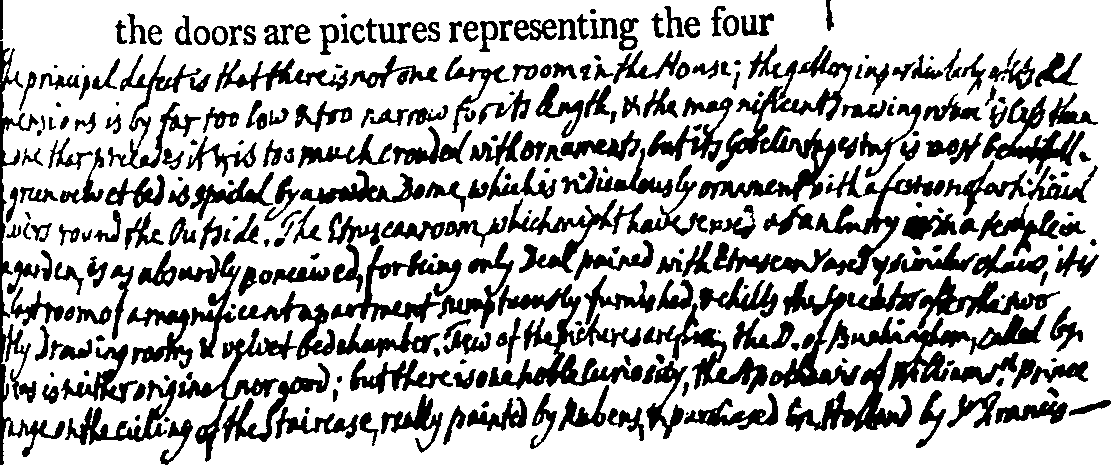 the doors are pictures representing the four
The principal defect is that there is not one large room in the House; the gallery in particularly
mensions is by far too low & too narrow for its length, & the magnificent Drawing room is less than
one that precedes it, & is too much crouded with ornaments, but its Gobelins tapestry is most beautifull.
green velvet bed is spoiled by a wooden Dome, which is ridiculously ornament with a festoon of artificial
round the Outside. The Etruscan room, which might have served as an Entry in a temple in
a garden, is as absurdly for being only Deal painted with Etruscan Vases & similar it is
last room of a magnificent apartment sumptuously furnished, & chills the spectator after the two
Drawing rooms & velvet bedchamber. Few of the pictures are fine; the D. of Buckingham, called by
is neither original nor good; but there is one noble Curiosity, the Apotheosis of William 1st. Prince
range on the cieling of the Staircase, really painted by Rubens, & purchased in Holland by Sr Francis —